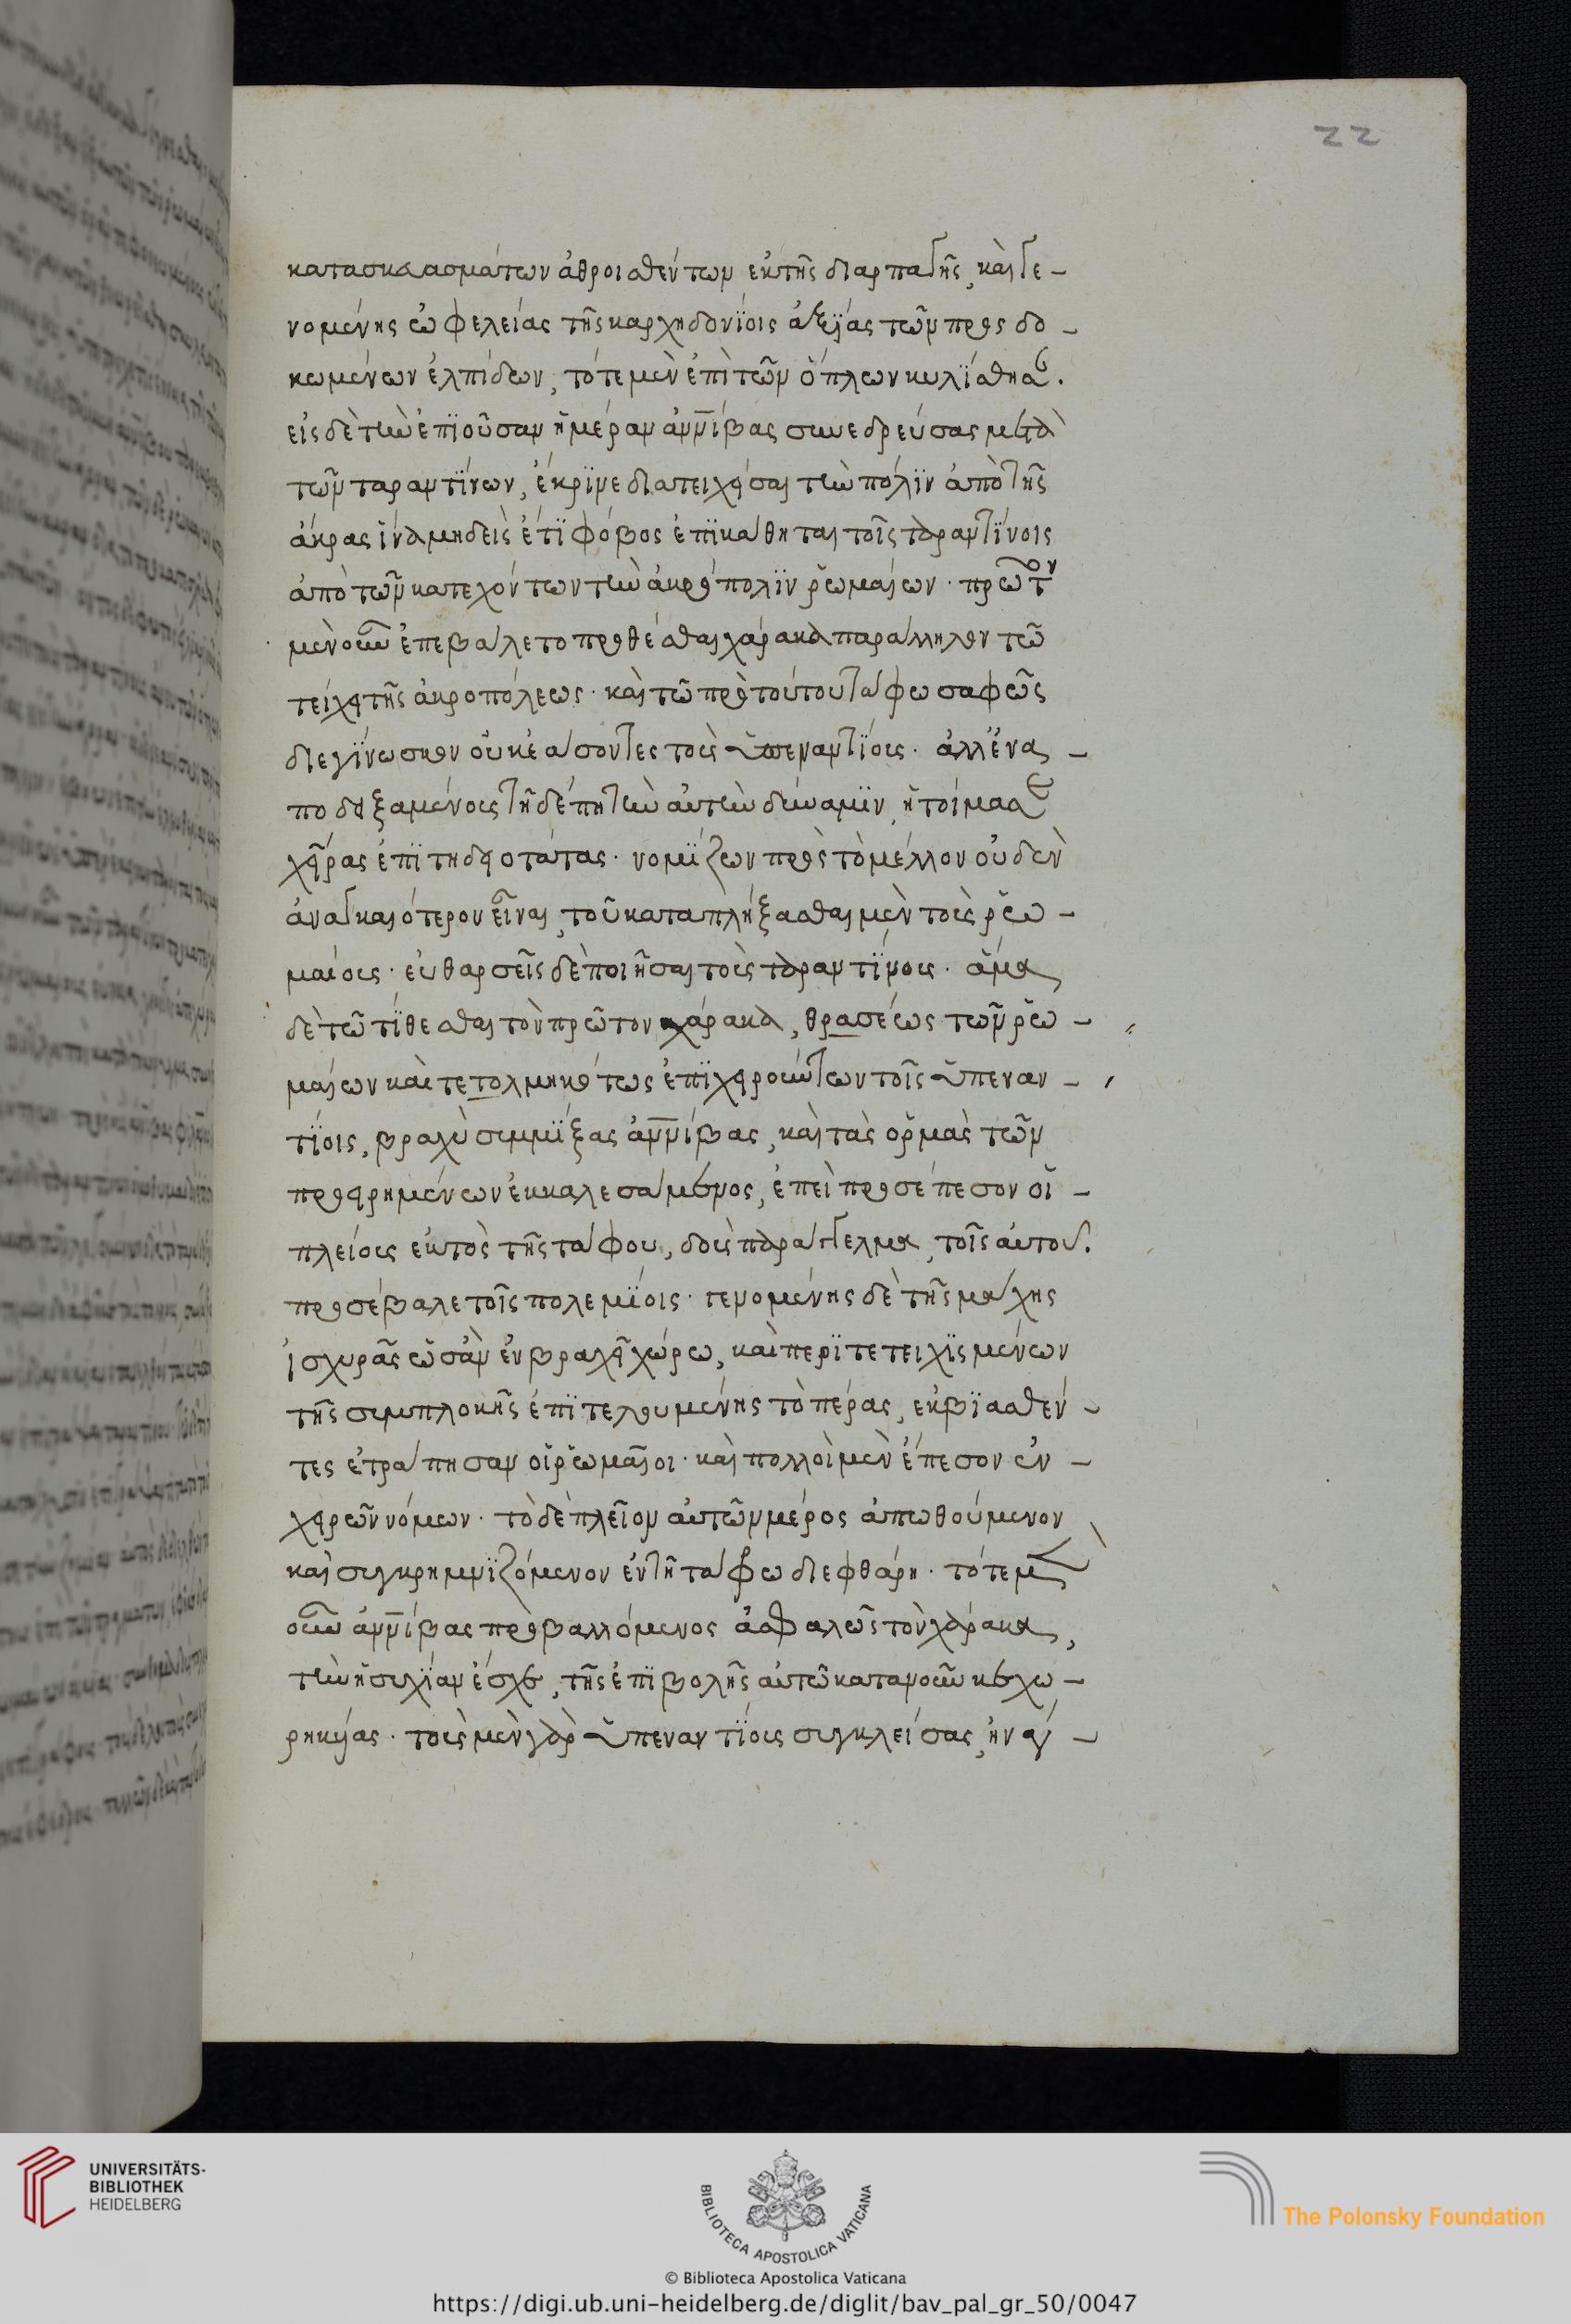 22
κατασκευασμάτων ἀθροισθέντων ἐκ τῆς διαρπαγῆς, καὶ γε-
νομένης ὠφελείας τῆς καρχηδονίοις ἀξίας τῶν προσδο-
κωμένων ἐλπίδων, τότε μὲν ἐπὶ τῶν ὅπλων ηυλίσθησαν.
εἰς δὲ τὴν ἐπιοῦσαν ἡμέραν ἀννίβας συνεδρεύσας μετὰ
τῶν ταραντίνων, ἔκρινε διατειχίσαι τὴν πόλιν ἀπὸ τῆς
ἄκρας ἵνα μηδεὶς ἔτι φόβος ἐπικάθηται τοῖς ταραντίνοις
ἀπὸ τῶν κατεχόντων τὴν ἀκρόπολιν ῥωμαίων. πρῶτον
μὲν οὖν ἐπεβάλετο προθέσθαι χάρακα παράλληλον τῶ
τείχει τῆς ἀκροπόλεως. καὶ τῶ πρὸ τούτου τάφω σαφῶς
διεγίνωσκον οὐκ ἐάσοντες τοὺς ὑπεναντίους. ἀλλ' ἐνα-
ποδειξαμένους τῆδέ πη τὴν αὐτῶν δύναμιν, ἡτοίμασε
χεῖρας ἐπιτηδειοτάτας. νομίζων πρὸς τὸ μέλλον οὐδὲν
ἀναγκαιότερον εἶναι, τοῦ καταπλήξασθαι μὲν τοὺς ῥω-
μαίους. εὐθαρσεῖς δὲ ποιῆσαι τοὺς ταραντίνους. ἅμα
δὲ τῶ τίθεσθαι τὸν πρῶτον χάρακα, θρασέως τῶν ῥω-
μαίων καὶ τετολμηκότως ἐπιχειρούντων τοῖς ὑπεναν-
τίοις, βραχὺ συμμίξας ἀννίβας, καὶ τὰς ὁρμὰς τῶν
προειρημένων ἐκκαλεσάμενος, ἐπεὶ προσέπεσον οἱ
πλείους ἐκτὸς τῆς τάφου, δοὺς παράγγελμα, τοῖς αὐτοῦ.
προσέβαλε τοῖς πολεμίοις. γενομένης δὲ τῆς μάχης
ἰσχυρᾶς ὡσὰν ἐν βραχεῖ χώρω, καὶ περιτετειχισμένων
τῆς συμπλοκῆς ἐπιτελουμένης τὸ πέρας, ἐκβιασθέν-
τες ἐτράπησαν οἱ ῥωμαῖοι. καὶ πολλοὶ μὲν ἔπεσον ἐν
χειρῶν νόμων. τὸ δὲ πλεῖον αὐτῶν μέρος ἀπωθούμενον
καὶ συγκρημνιζόμενον ἐν τῆ τάφω διεφθάρη. τότε μὲν
οὖν ἀννίβας προβαλλόμενος ἀσφαλῶς τὸν χάρακα,
τὴν ἡσυχίαν ἔσχε, τῆς ἐπιβολῆς αὐτῶ κατανοῦν κεχω-
ρηκυίας. τοὺς μὲν γὰρ ὑπεναντίους συγκλείσας, ἠνάγ-
UNIVERSITÄTS-
BIBLIOTHEK
HEIDELBERG
BIBLIOTECA APOSTOLICA VATICANA
The Polonsky Foundation
© Biblioteca Apostolica Vaticana
https://digi.ub.uni-heidelberg.de/diglit/bav_pal_gr_50/0047